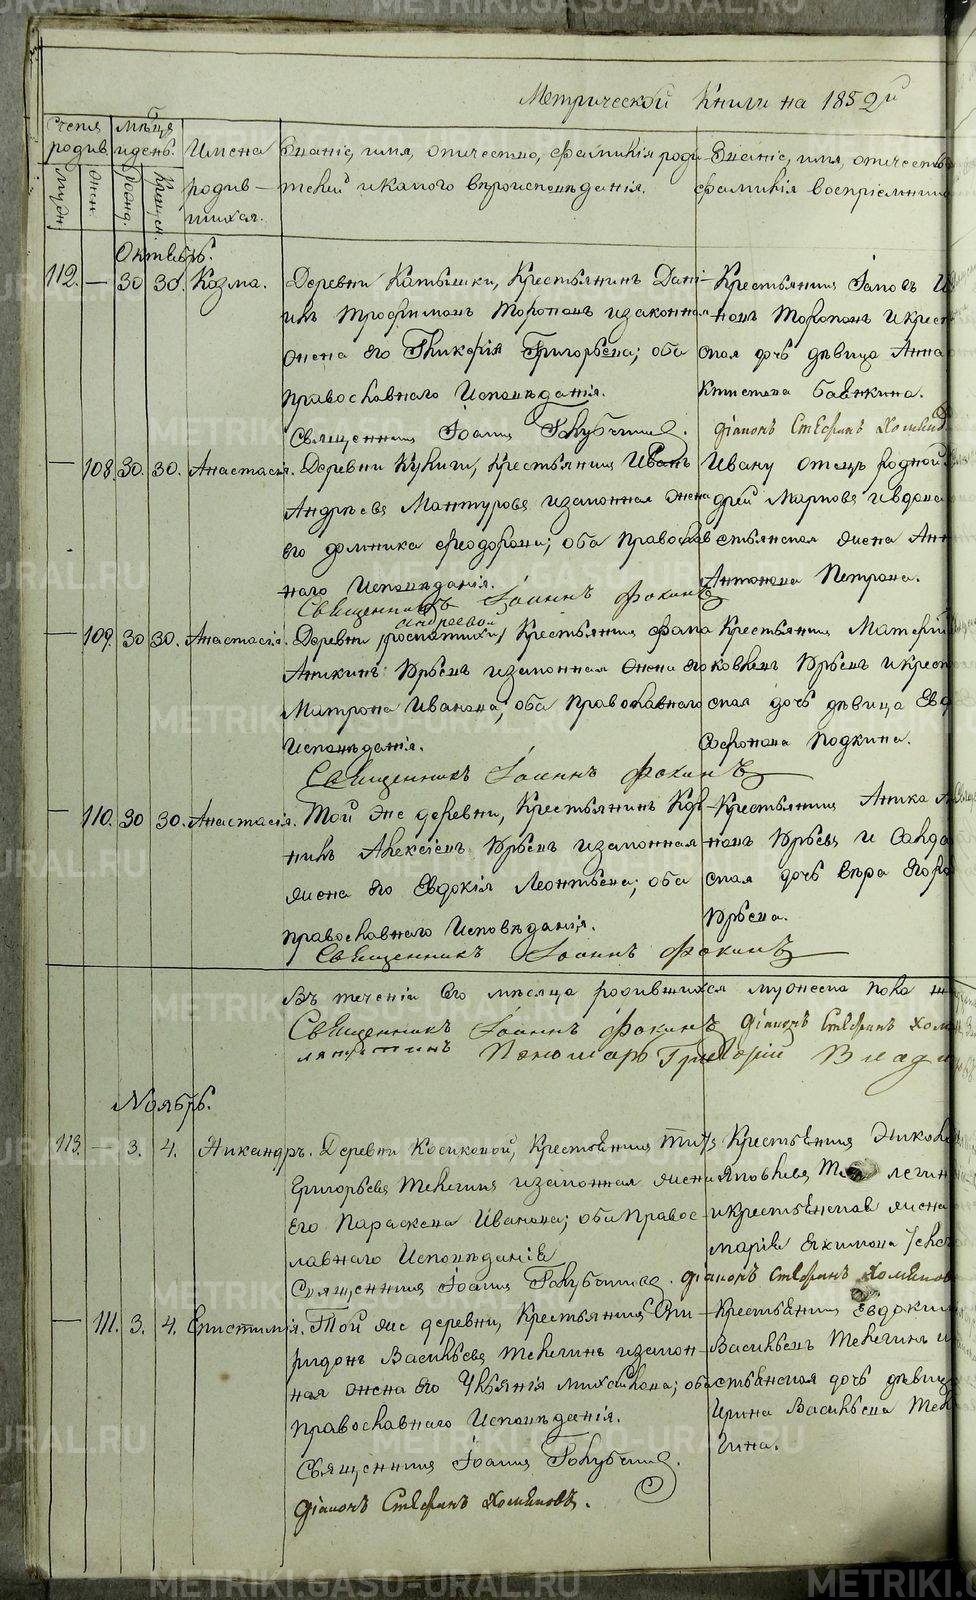 Метрической Книги на 1852й
Счетъ родив.
Мѣсяцъ и день.
Имена родив-шихся.
Званіе, имя, отчество, фамилія роди-
телей и какого вѣроисповѣданія.
Званіе, имя, отчество
фамилія воспріемник
Муж.
Жен.
Рожд.
Крещен.
Октябрь.
112. — 30 30. Козма.
Деревни Катышки, Крестьянинъ Дані-
илъ Трофимовъ Торопов и законная
жена его Гликерія Григорьева; оба
православнаго Исповѣданія.
Священникъ Іоаннъ Голубчиков.
Крестьянинъ Іаковъ И
новъ Тороповъ и крест
ская дочь дѣвица Анна
Бабкина.
Діаконъ Стефанъ Хомяков
— 108. 30. 30. Анастасія.
Деревни Кулиги, Крестьянинъ Иванъ
Андреевъ Мантуровъ и законная жена
его Домника Феодорова; оба Православ
наго Исповѣданія.
Священникъ Іоаннъ Фокинъ
Ивану отецъ родной
дрей Марковъ и вдова
стьянская жена Анн
Антонова Петрова.
— 109. 30 30. Анастасія.
Андреевой
Деревни Крестьянинъ Фама
Аникинъ Юрьевъ и законная жена его
Матрона Иванова; оба Православнаго
Исповѣданія.
Священникъ Іоаннъ Фокинъ
Крестьянинъ
ковлевъ Юрьевъ и крест
ская дочь дѣвица Евд
Софронова Подкина.
— 110. 30 30. Анастасія.
Той же деревни, Крестьянинъ Кор-
нилъ Алексіевъ Юрьевъ и законная
жена его Евдокія Леонтьева; оба
православнаго Исповѣданія.
Священникъ Іоаннъ Фокинъ
Крестьянинъ Аника А
новъ Юрьевъ и Солда
ская дочь Вѣра Егоро
Юрьева.
Въ теченіи сего мѣсяца родившихся мужеска пола
Священникъ Іоаннъ Фокинъ Діаконъ Стефанъ Хом
Пономарь Григорій Влади
Ноябрь.
113. — 3. 4. Никандръ.
Деревни Косиковой, Крестьянинъ Титъ
Григорьевъ Телегинъ и законная жена
его Параскева Иванова; оба Правос-
лавнаго Исповѣданія
Священникъ Іоаннъ Голубчиков.
Крестьянинъ Никола
Яковлевъ Телегин
и крестьянская жена
Марія Якимова
Діаконъ Стефанъ Хомяков
— 111. 3. 4. Епистимія.
Той же деревни, Крестьянинъ Спи-
ридонъ Васильевъ Телегинъ и закон-
ная жена его Ульянія Михайлова; оба
православнаго Исповѣданія.
Священникъ Іоаннъ Голубчиков.
Діаконъ Стефанъ Хомяковъ.
Крестьянинъ Евдоким
Васильевъ Телегинъ и
стьянская дочь дѣвиц
Ирина Васильева Теле
гина.
METRIKI.GASO-URAL.RU